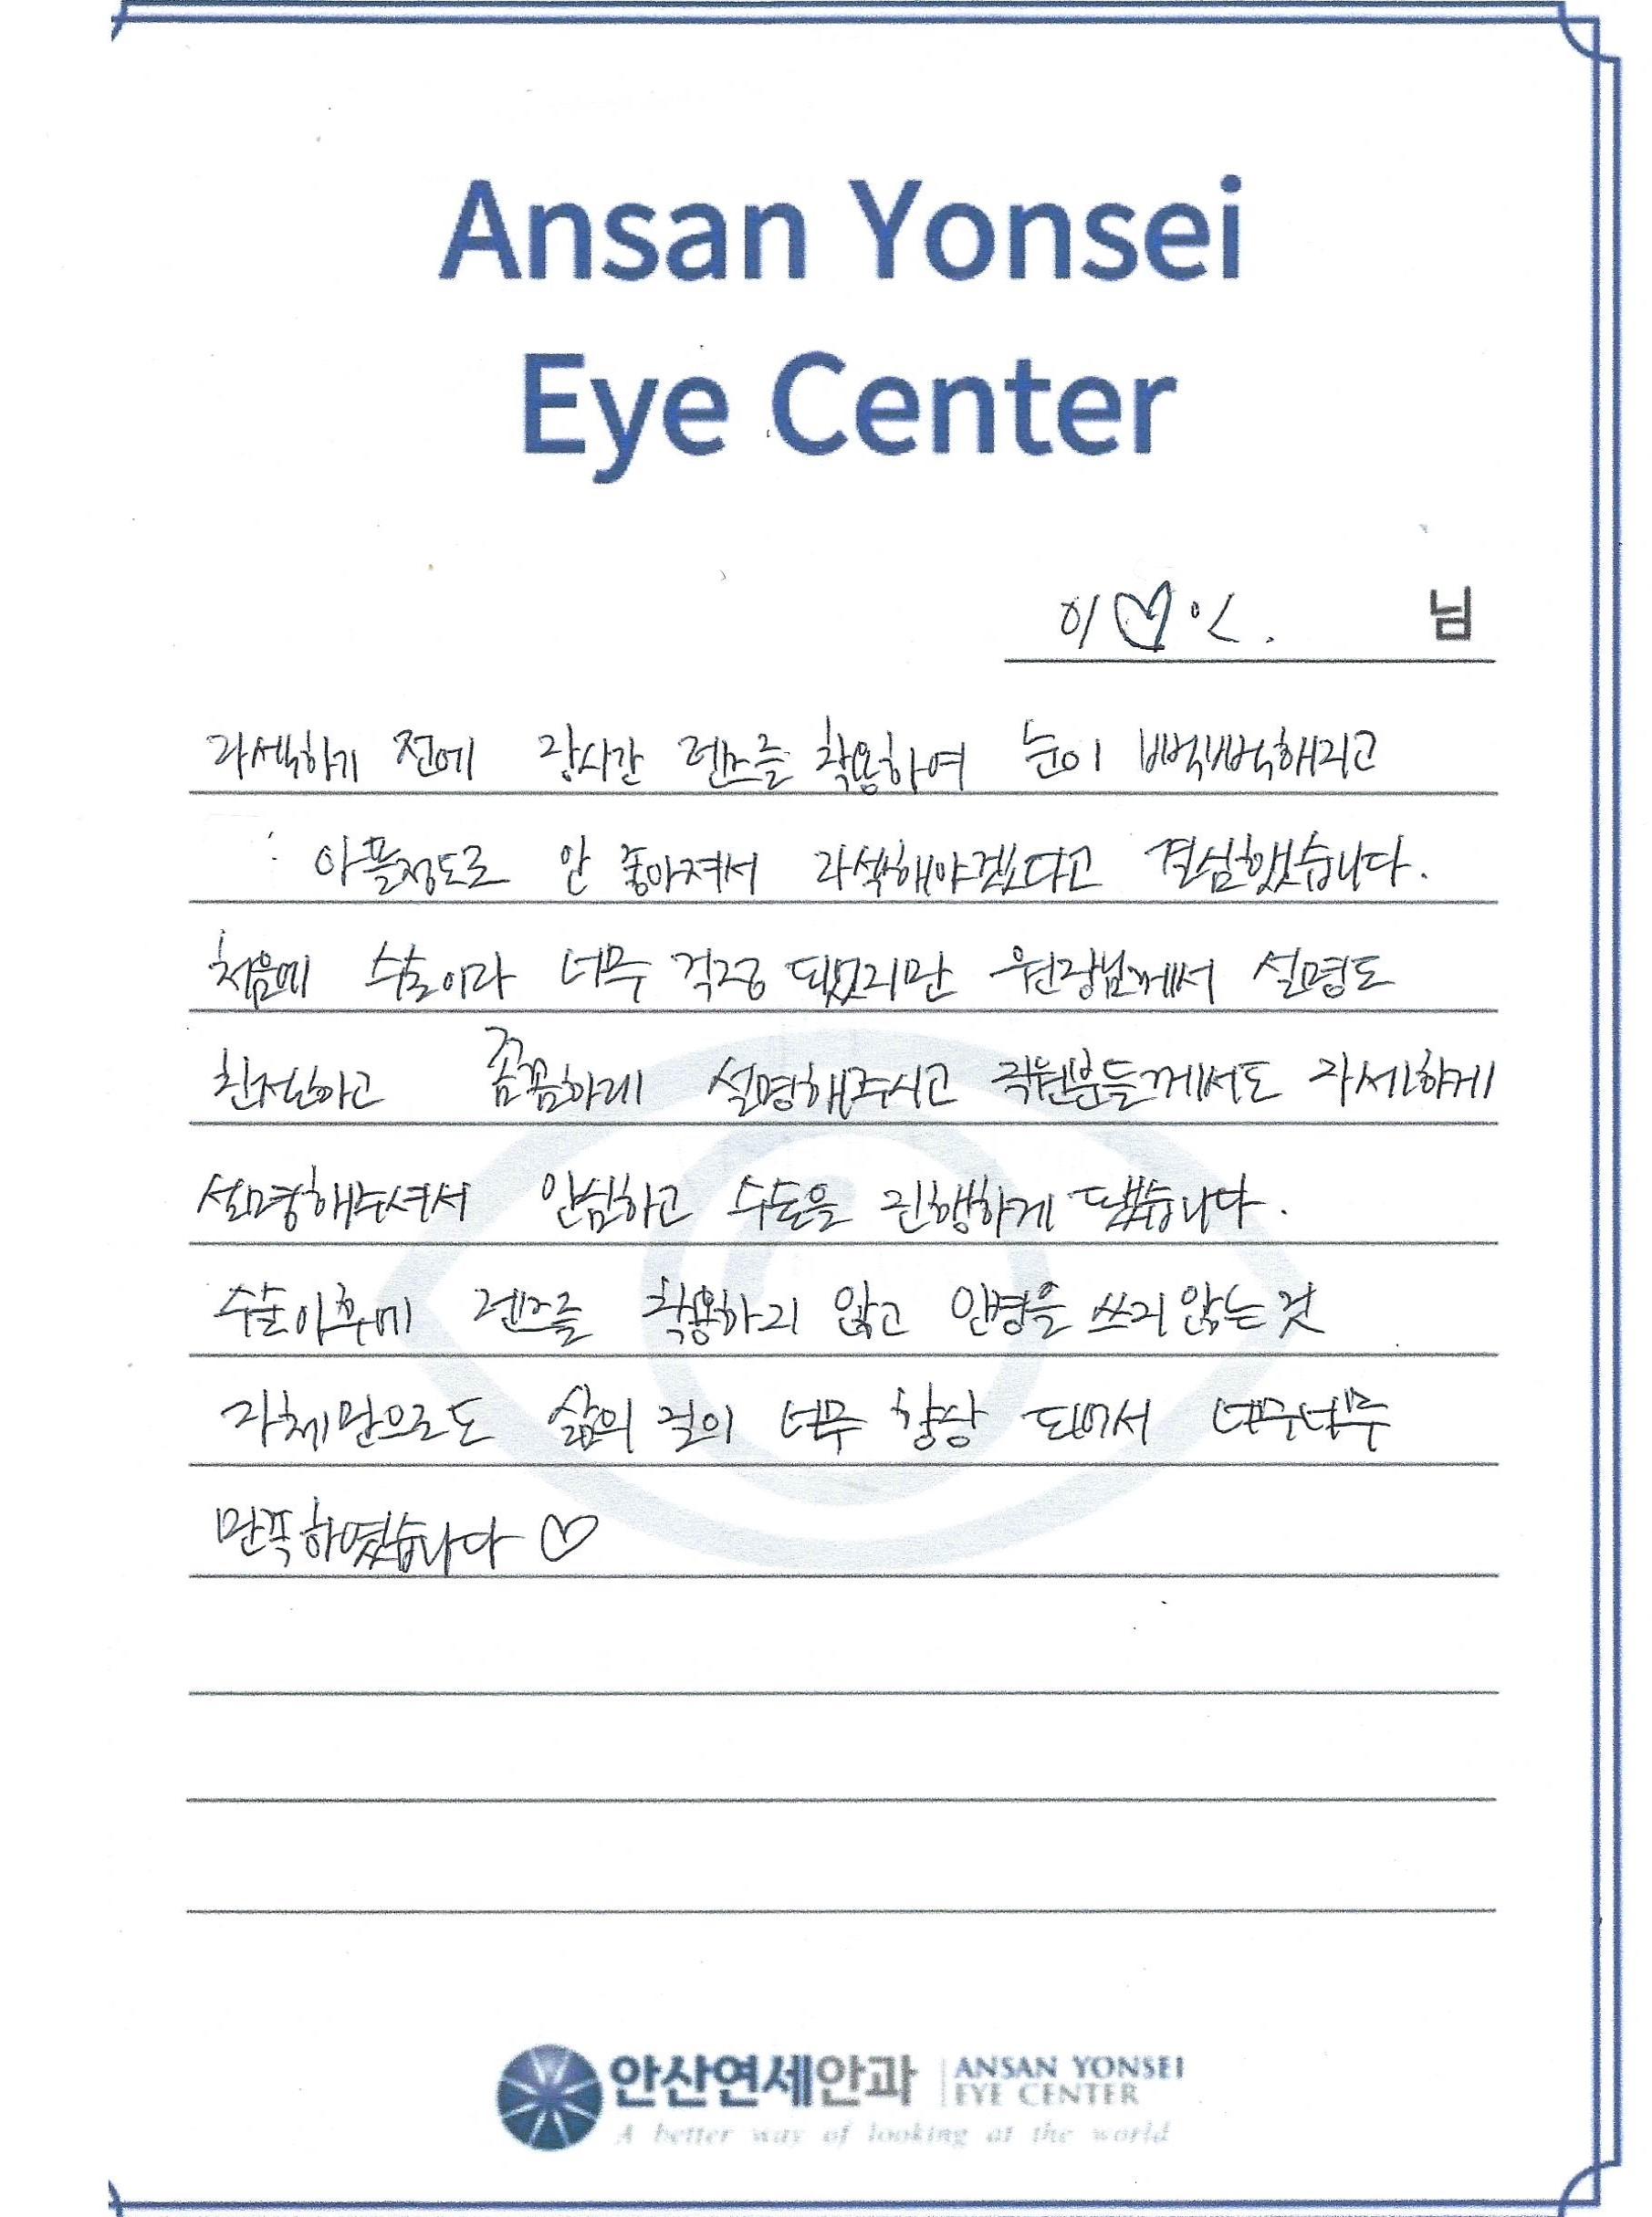 Ansan Yonsei
Eye Center
이♡인. 님
라섹하기 전에 장시간 렌즈를 착용하여 눈이 뻑뻑해지고
아플정도로 안 좋아져서 라섹해야겠다고 결심했습니다.
처음에 수술이라 너무 걱정 되었지만 원장님께서 설명도
친절하고 꼼꼼하게 설명해주시고 직원분들께서도 자세하게
설명해주셔서 안심하고 수술을 진행하게 됐습니다.
수술이후에 렌즈를 착용하지 않고 안경을 쓰지 않는 것
자체만으로도 삶의 질이 너무 향상 되어서 너무너무
만족하였습니다 ♡
안산연세안과 ANSAN YONSEI
EYE CENTER
A better way of looking at the world